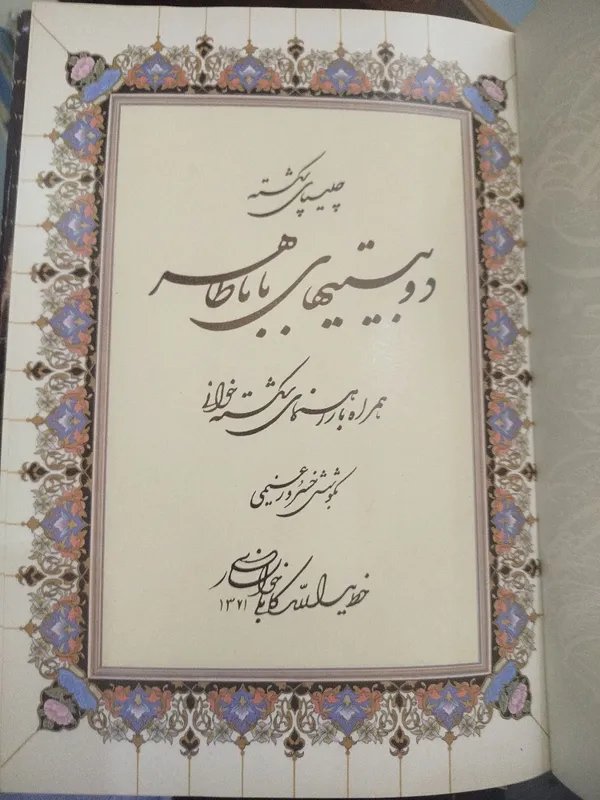 چلیپای شکسته
دوبیتیهای باباطاهر
همراه با راهنمای شکسته خوانی
بکوشش خسرو زعیمی
خط یدالله کابلی خوانساری
۱۳۷۱